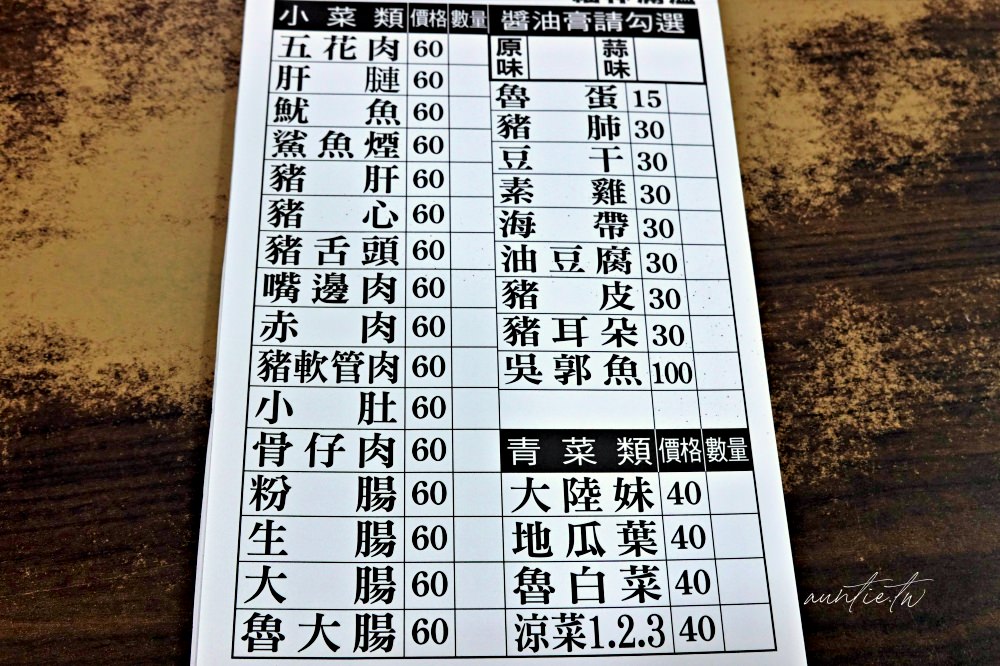 小菜類 價格 數量
五花肉 60
肝腱 60
魷魚 60
鯊魚煙 60
豬肝 60
豬心 60
豬舌頭 60
嘴邊肉 60
赤肉 60
豬軟管肉 60
小肚 60
骨仔肉 60
粉腸 60
生腸 60
大腸 60
魯大腸 60
醬油膏請勾選
原味 蒜味
魯蛋 15
豬肺 30
豆干 30
素雞 30
海帶 30
油豆腐 30
豬皮 30
豬耳朵 30
吳郭魚 100
青菜類 價格 數量
大陸妹 40
地瓜葉 40
魯白菜 40
涼菜1.2.3 40
auntie.tw